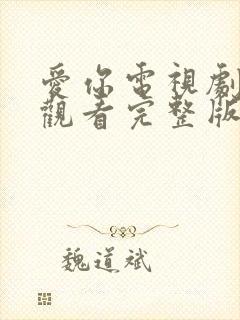 愛你電視劇
觀看完整版
魏道斌